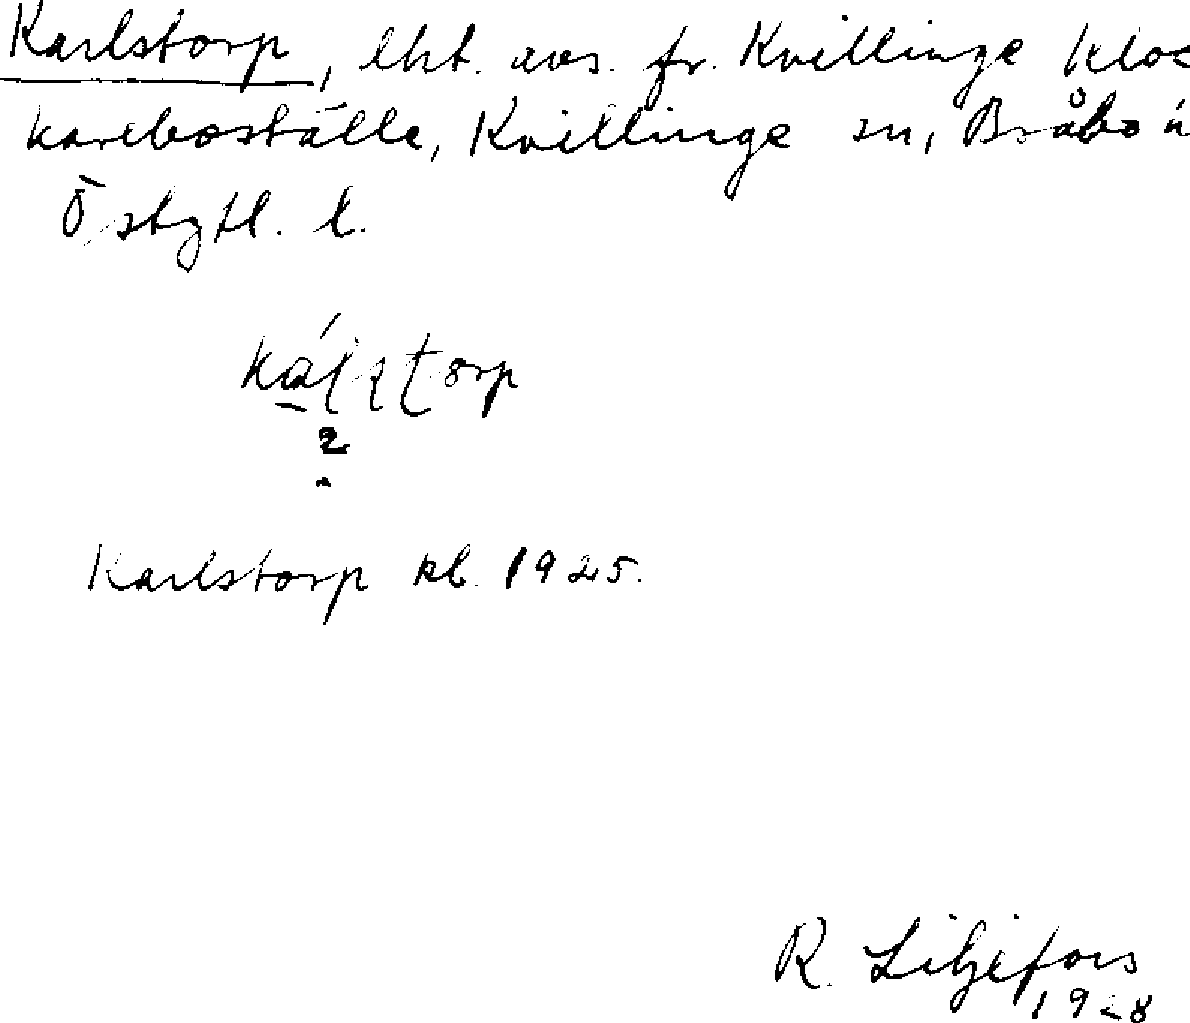 Karlstorp, lht. avs. fr. Kvillinge kloc
kareboställe, Kvillinge sn, Bråbo
Östgtl. l.
Karlstorp kb. 1925.
R. Liljefors
1928